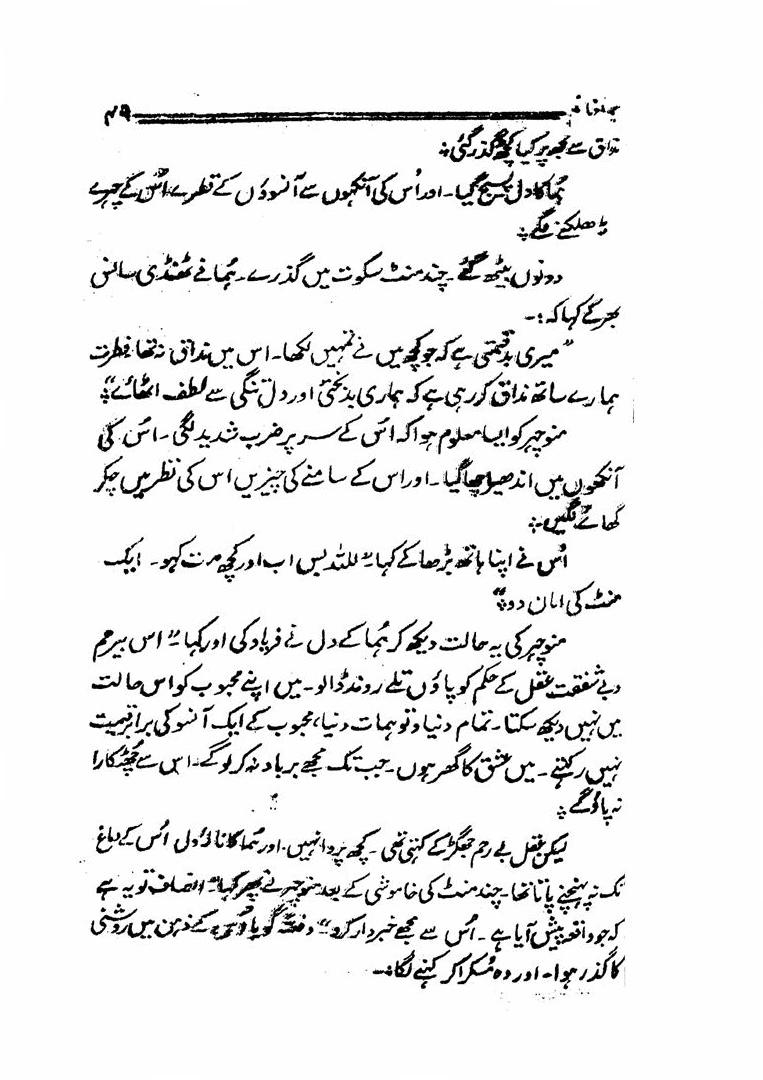 ۴۹
مذاق سے مجھ پر کیا کچھ گذر گئی ÷
ہُما کا دل پسیج گیا۔ اور اُس کی آنکھوں سے آنسوؤں کے قطرے اُس کے چہرے
ڈھلکنے لگے ÷
دونوں بیٹھ گئے۔ چند منٹ سکوت میں گذرے۔ ہُما نے ٹھنڈی سانس
بھر کے کہا کہ :۔
"میری بدقسمتی ہے کہ جو کچھ میں نے تمہیں لکھا۔ اس میں مذاق نہ تھا فطرت
ہمارے ساتھ مذاق کر رہی ہے کہ ہماری بدبختی اور دل تنگی سے لطف اٹھائے" ÷
منوچہر کو ایسا معلوم ہوا کہ اُس کے سر پر ضرب شدید لگی۔ اُس کی
آنکھوں میں اندھیرا چھا گیا۔ اور اس کے سامنے کی چیزیں اس کی نظر میں چکر
کھانے لگیں ÷
اُس نے اپنا ہاتھ بڑھا کے کہا "للہ بس اب اور کچھ مت کہو۔ ایک
منٹ کی امان دو"
منوچہر کی یہ حالت دیکھ کر ہُما کے دل نے فریاد کی اور کہا "اس بیرحم
و بے شفقت عقل کے حکم کو پاؤں تلے روند ڈالو۔ میں اپنے محبوب کو اس حالت
میں نہیں دیکھ سکتا۔ تمام دنیا و توہمات دنیا، محبوب کے ایک آنسو کی برابر قیمت
نہیں رکھتے۔ میں عشق کا گھر ہوں۔ جب تک مجھے برباد نہ کر لو گے۔ اس سے چھٹکارا
نہ پاؤ گے ÷
لیکن عقل بے رحم جھگڑ کے کہتی تھی۔ کچھ پروا نہیں۔ اور ہُما کا نالۂ دل اُس کے دماغ
تک نہ پہنچنے پاتا تھا۔ چند منٹ کی خاموشی کے بعد منوچہر نے پھر کہا "انصاف تو یہ ہے
کہ جو واقعہ پیش آیا ہے۔ اُس سے مجھے خبردار کرو" دفعتہً گویا اُس کے ذہن میں روشنی
کا گذر ہوا۔ اور وہ مُسکرا کر کہنے لگا :۔